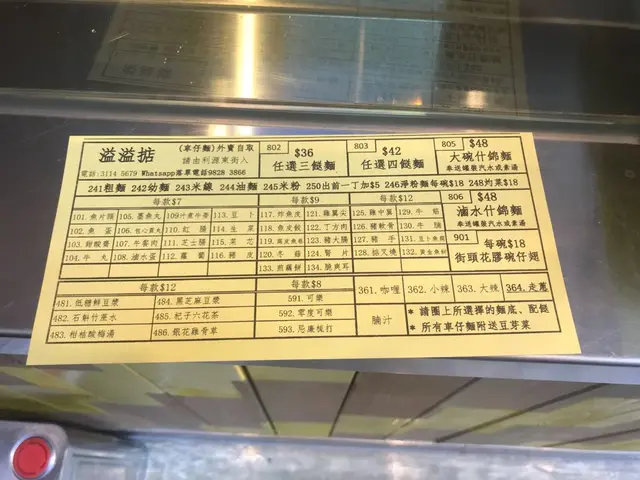 溢溢掂
(車仔麵)外賣自取
請由利源東街入
電話:3114 5679 Whatsapp落單電話9828 3866
802 $36
任選三餸麵
803 $42
任選四餸麵
805 $48
大碗什錦麵
奉送罐裝汽水或素湯
241粗麵 242幼麵 243米線 244油麵 245米粉 250出前一丁加$5 246淨粉麵每碗$18 248灼菜$18
每款$7 每款$9 每款$12
806 $48
滷水什錦麵
奉送罐裝汽水或素湯
101.魚片頭 105.墨魚丸 109汁煮牛膀 113.豆卜 117.炸魚皮 121.雞翼尖 125.雞中翼 129.牛筋
102.魚蛋 106. 110.紅腸 114.生菜 118.魚皮餃 122.丁方肉 126.豬軟骨 130.牛腩
103.甜酸齋 107.牛餐肉 111.芝士腸 115.菜芯 119. 123.豬大腸 127.豬手 131.
104.牛丸 108.滷水蛋 112.蘿蔔 116.豬皮 120.冬菇 124.腎片 128.掂叉燒 132.
133.煎釀餅 134.脆爽耳
901 每碗$18
街頭花膠碗仔翅
每款$12 每款$8
481.低糖鮮豆漿 484.黑芝麻豆漿 591.可樂
482.石斛竹蔗水 485.杞子六花茶 592.零度可樂
483.柑桔酸梅湯 486.銀花雞骨草 593.忌廉梳打
361.咖喱 362.小辣 363.大辣 364.走蔥
腩汁
* 請圈上所選擇的麵底、配餸
* 所有車仔麵附送豆芽菜